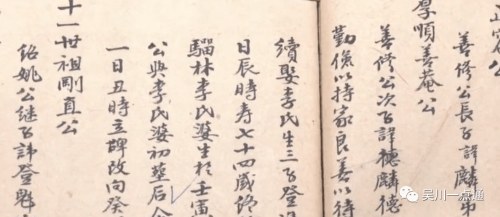 厚順善菴公
善修公長子諱麟
善修公次子諱穗麟德
勤儉以持家良善以待
續娶李氏生三子登
日辰時寿七十四歲終
騮林李氏婆生於壬寅
公與李氏婆初塟后
一日丑時立碑改向癸
十一世祖剛直公
紹姚公继子諱登
吴川一点通